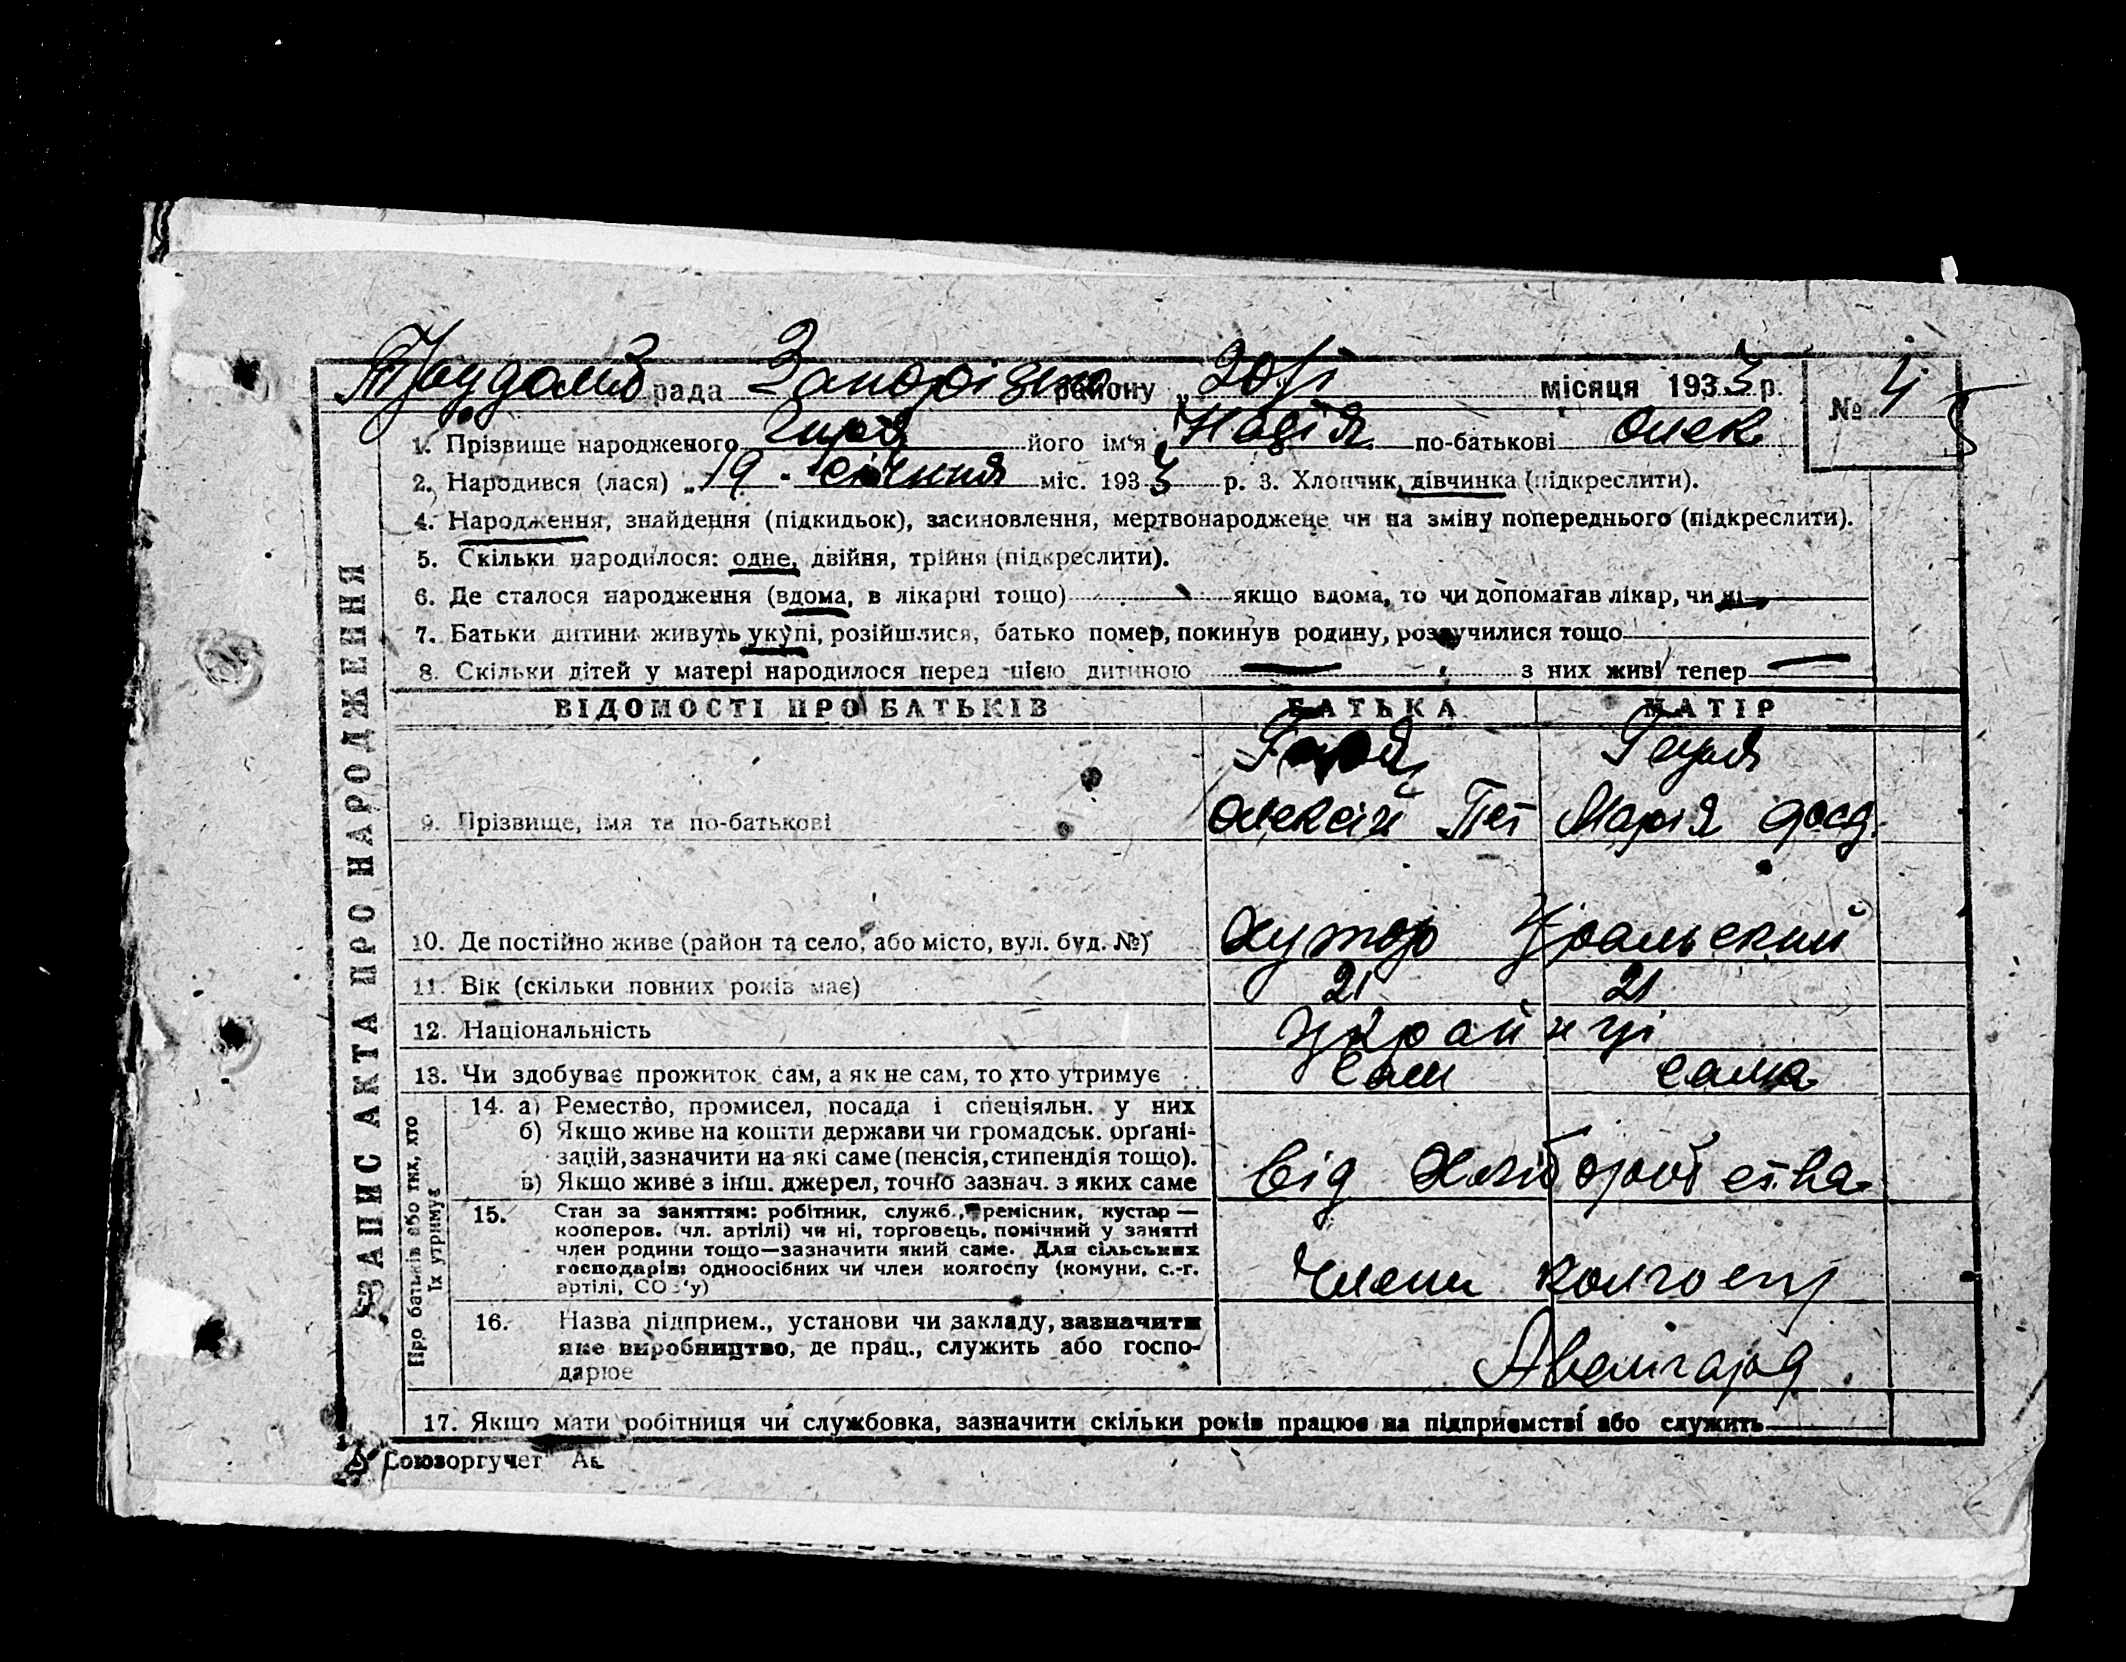 рада Запорізько району 20/I місяця 1933 р. № 4
1. Прізвище народженого його ім'я Надія по-батькові Олек
2. Народився (лася) „19 січння міс. 1933 р. 3. Хлопчик, дівчинка (підкреслити).
4. Народження, знайдення (підкидьок), засиновлення, мертвонароджене чи на зміну попереднього (підкреслити).
5. Скільки народилося: одне, двійня, трійня (підкреслити).
6. Де сталося народження (вдома, в лікарні тощо) якщо вдома, то чи допомагав лікар, чи ні
7. Батьки дитини живуть укупі, розійшлися, батько помер, покинув родину, розлучилися тощо
8. Скільки дітей у матері народилося перед цією дитиною — з них живі тепер —
ЗАПИС АКТА ПРО НАРОДЖЕННЯ
ВІДОМОСТІ ПРО БАТЬКІВ БАТЬКА МАТІР
9. Прізвище, імя та по-батькові Олексій Пет Марія Фосд.
10. Де постійно живе (район та село, або місто, вул. буд. №) Хутор Уральский
11. Вік (скільки повних років має) 21 21
12. Національність Українці
13. Чи здобуває прожиток сам, а як не сам, то хто утримує Сам сама
Про батьків або тих, хто їх утримує
14. а) Ремество, промисел, посада і спеціяльн. у них
б) Якщо живе на кошти держави чи громадськ. органі-
зацій, зазначити на які саме (пенсія, стипендія тощо).
в) Якщо живе з інш. джерел, точно зазнач. з яких саме від Хліборобства
15. Стан за заняттям: робітник, служб., ремісник, кустар —
кооперов. (чл. артілі) чи ні, торговець, помічний у занятті
член родини тощо—зазначити який саме. Для сільських
господарів: одноосібних чи член колгоспу (комуни, с.-г.
артілі, СОЗ'у) Члени колгоспу
16. Назва підприєм., установи чи закладу, зазначити
яке виробництво, де прац., служить або госпо-
дарює Авангард
17. Якщо мати робітниця чи службовка, зазначити скільки років працює на підприємстві або служить
Союзоргучет